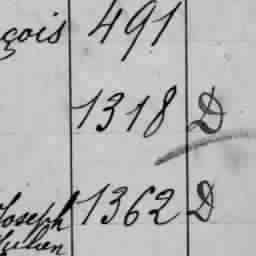 çois 491
1318 D
Joseph 1362 D
Julien